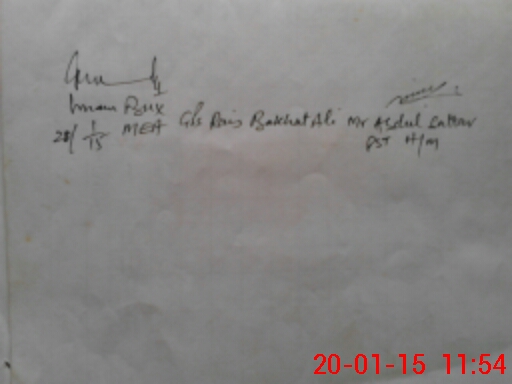 Imam Bux
20/1/15 MEA Gbs Rais Bakhat Ali Mr Abdul Sattar
PST H/M
20-01-15 11:54